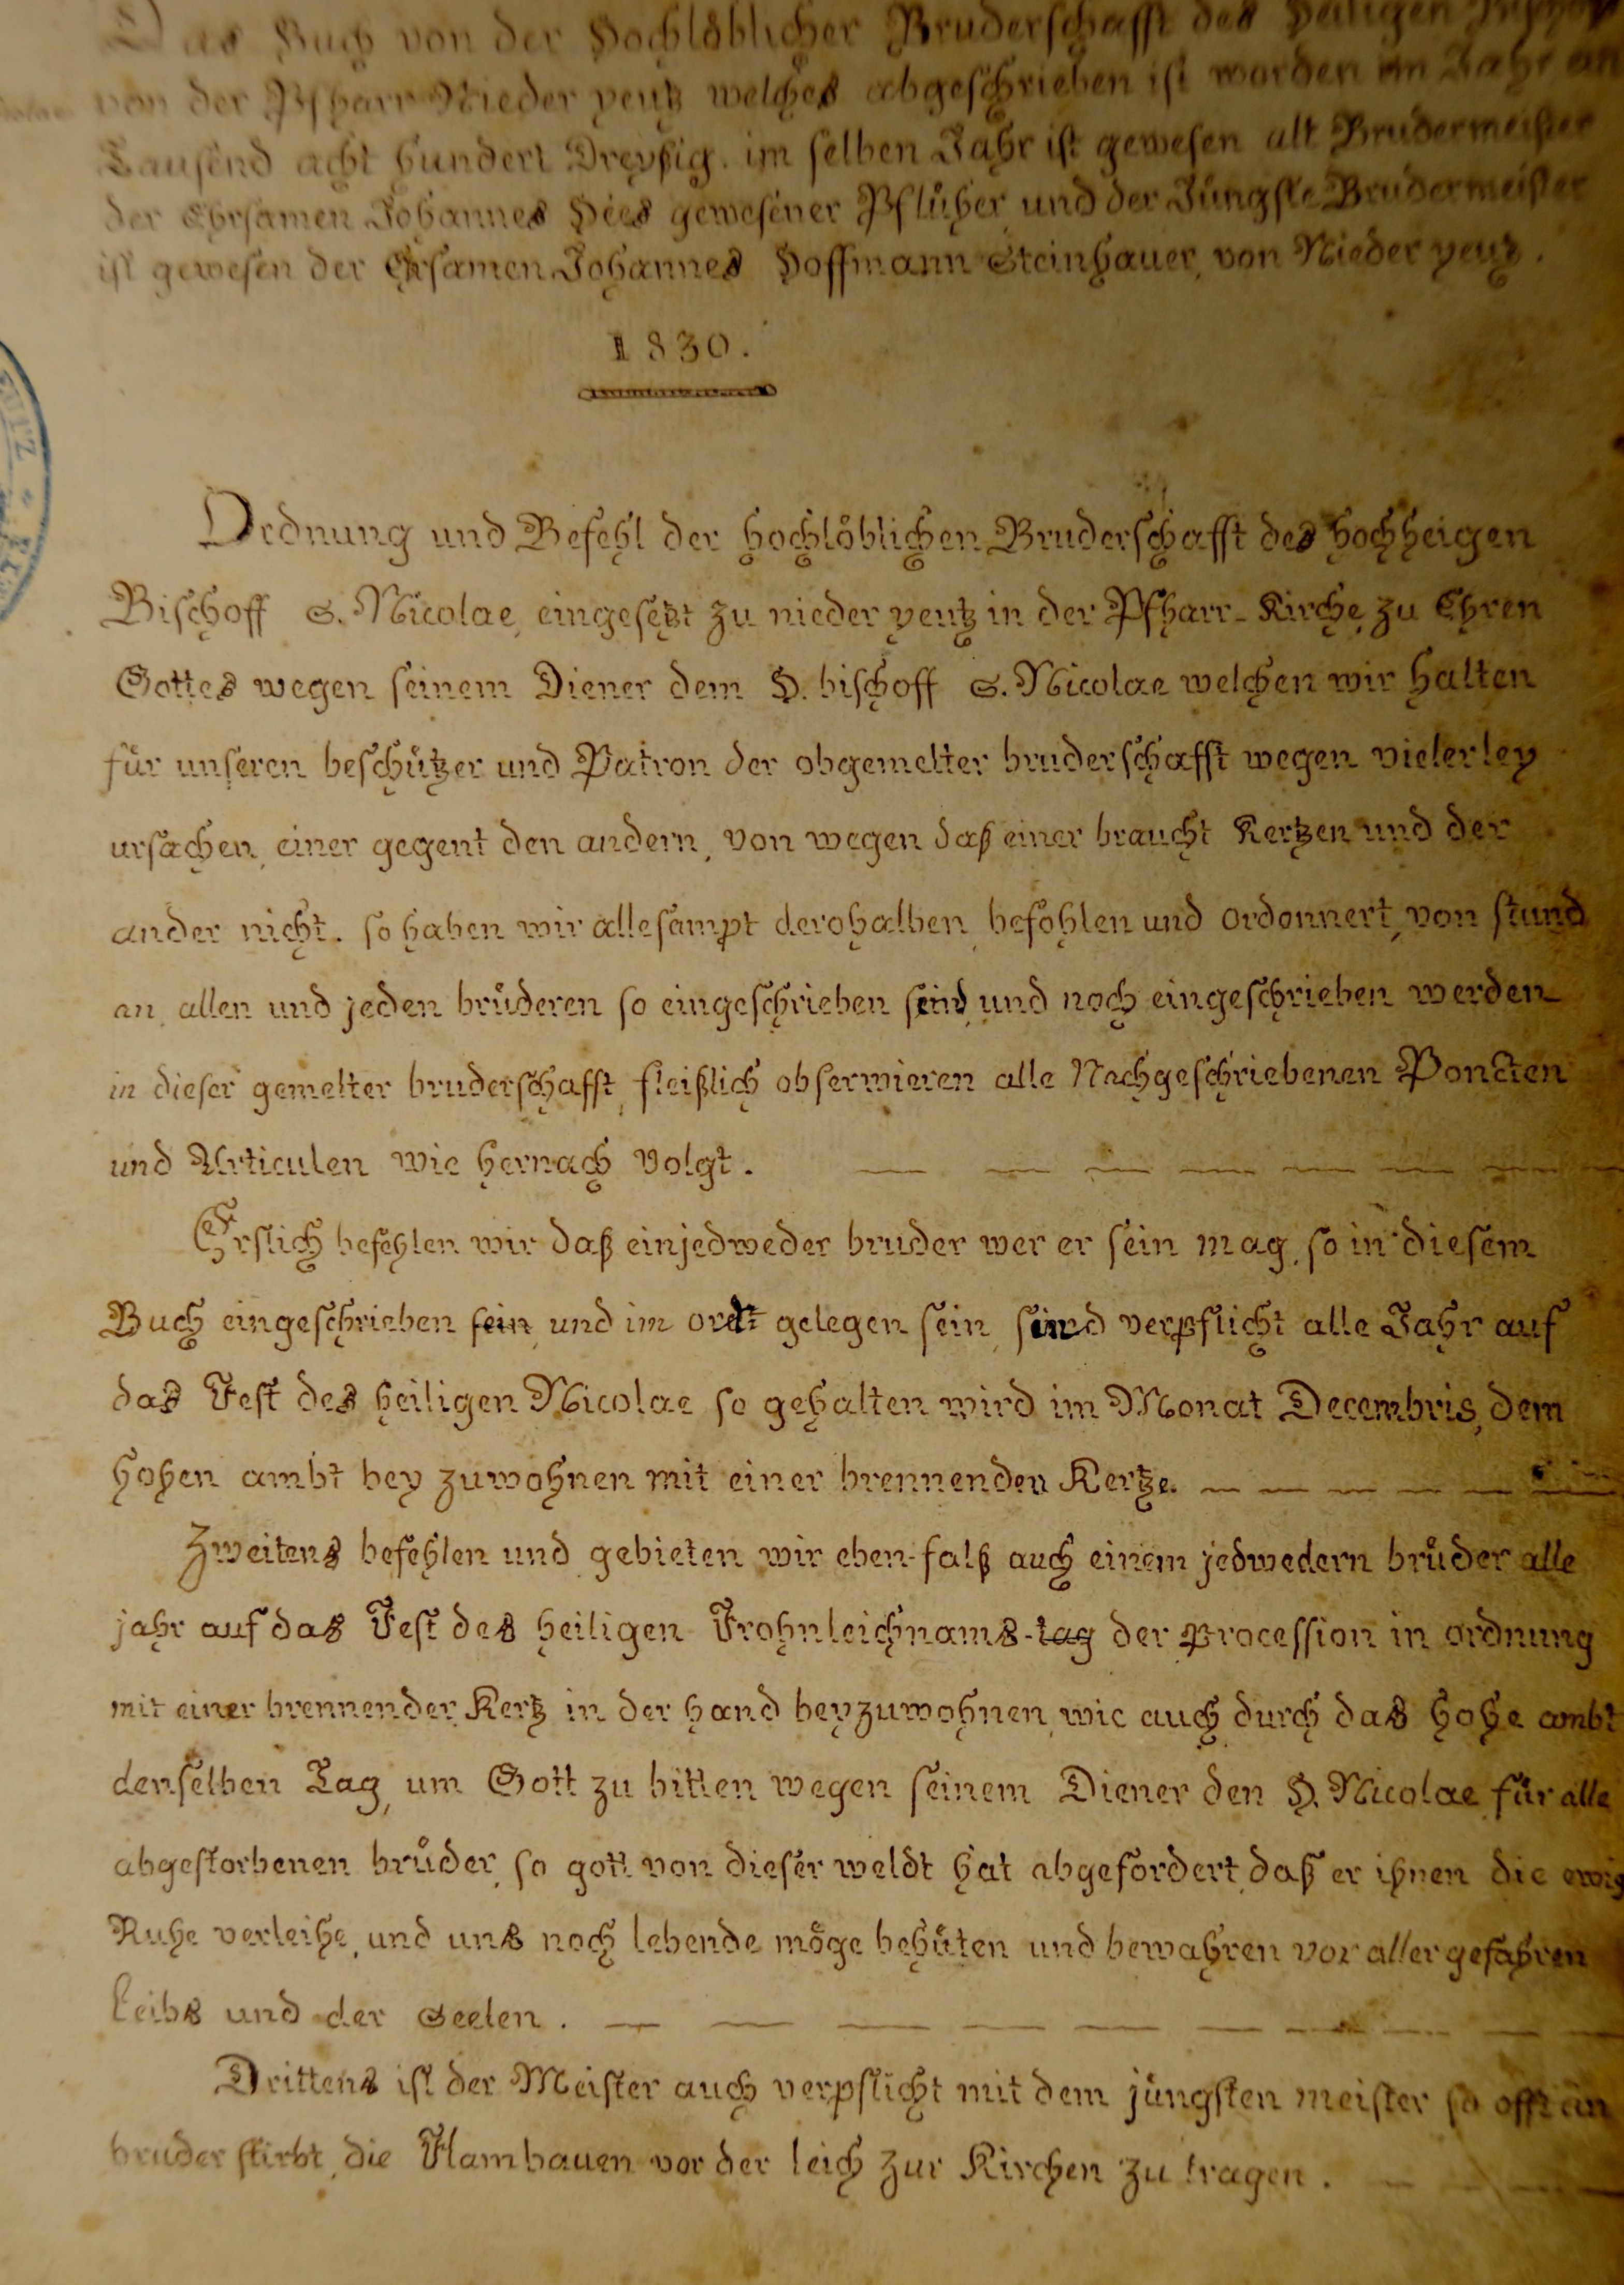 Das Buch von der Hochlöblicher Bruderschafft des Heiligen
von der Pfharr Nieder yeutz welches abgeschrieben ist worden im Jahr ein
Tausend acht hundert Dreyßig. im selben Jahr ist gewesen alt Brudermeister
der Ehrsamen Johannes Hees gewesener Pflüher, und der Jüngste Brudermeister
ist gewesen der Ehrsamen Johannes Hoffmann Steinhauer, von Nieder yeutz.
1830.
Ordnung und Befehl der hochlöblichen Bruderschafft des hochheigen
Bischoff S. Nicolae, eingesetzt zu nieder yeutz in der Pfharr-Kirche, zu Ehren
Gottes wegen seinem Diener dem H. bischoff S. Nicolae welchen wir halten
für unseren beschützer und Patron der obgemelter bruderschafft wegen vielerley
ursachen, einer gegent den andern, von wegen daß einer braucht Kertzen und der
ander nicht. so haben wir allesampt derohalben, befohlen und ordonnert, von stund
an, allen und jeden brüderen so eingeschrieben seind, und noch eingeschrieben werden
in dieser gemelter bruderschafft, fleißlich obserwieren alle Nachgeschriebenen Poncten
und Articulen wie hernach Volgt.
Erslich befehlen wir daß einjedweder bruder wer er sein mag, so in diesem
Buch eingeschrieben sein, und im ordt gelegen sein, sind verpflicht alle Jahr auf
das Fest des heiligen Nicolae so gehalten wird im Monat Decembris, dem
hohen ambt bey zuwohnen mit einer brennenden Kertze.
Zweitens befehlen und gebieten wir eben-falß auch einem jedwedern brüder alle
jahr auf das Fest des heiligen Frohnleichnams-tag der Procession in ordnung
mit einer brennender Kertz in der hand beyzuwohnen, wie auch durch das hohe ambt
denselben Tag, um Gott zu bitten wegen seinem Diener den H. Nicolae für alle
abgestorbenen brüder, so gott von dieser weldt hat abgefordert, daß er ihnen die ewig
Ruhe verleihe, und uns noch lebende möge behüten und bewahren vor aller gefahren
Leibs und der Seelen.
Drittens ist der Meister auch verpflicht mit dem jüngsten meister so offt ein
bruder stirbt, die Flambauen vor der leich zur Kirchen zu tragen.